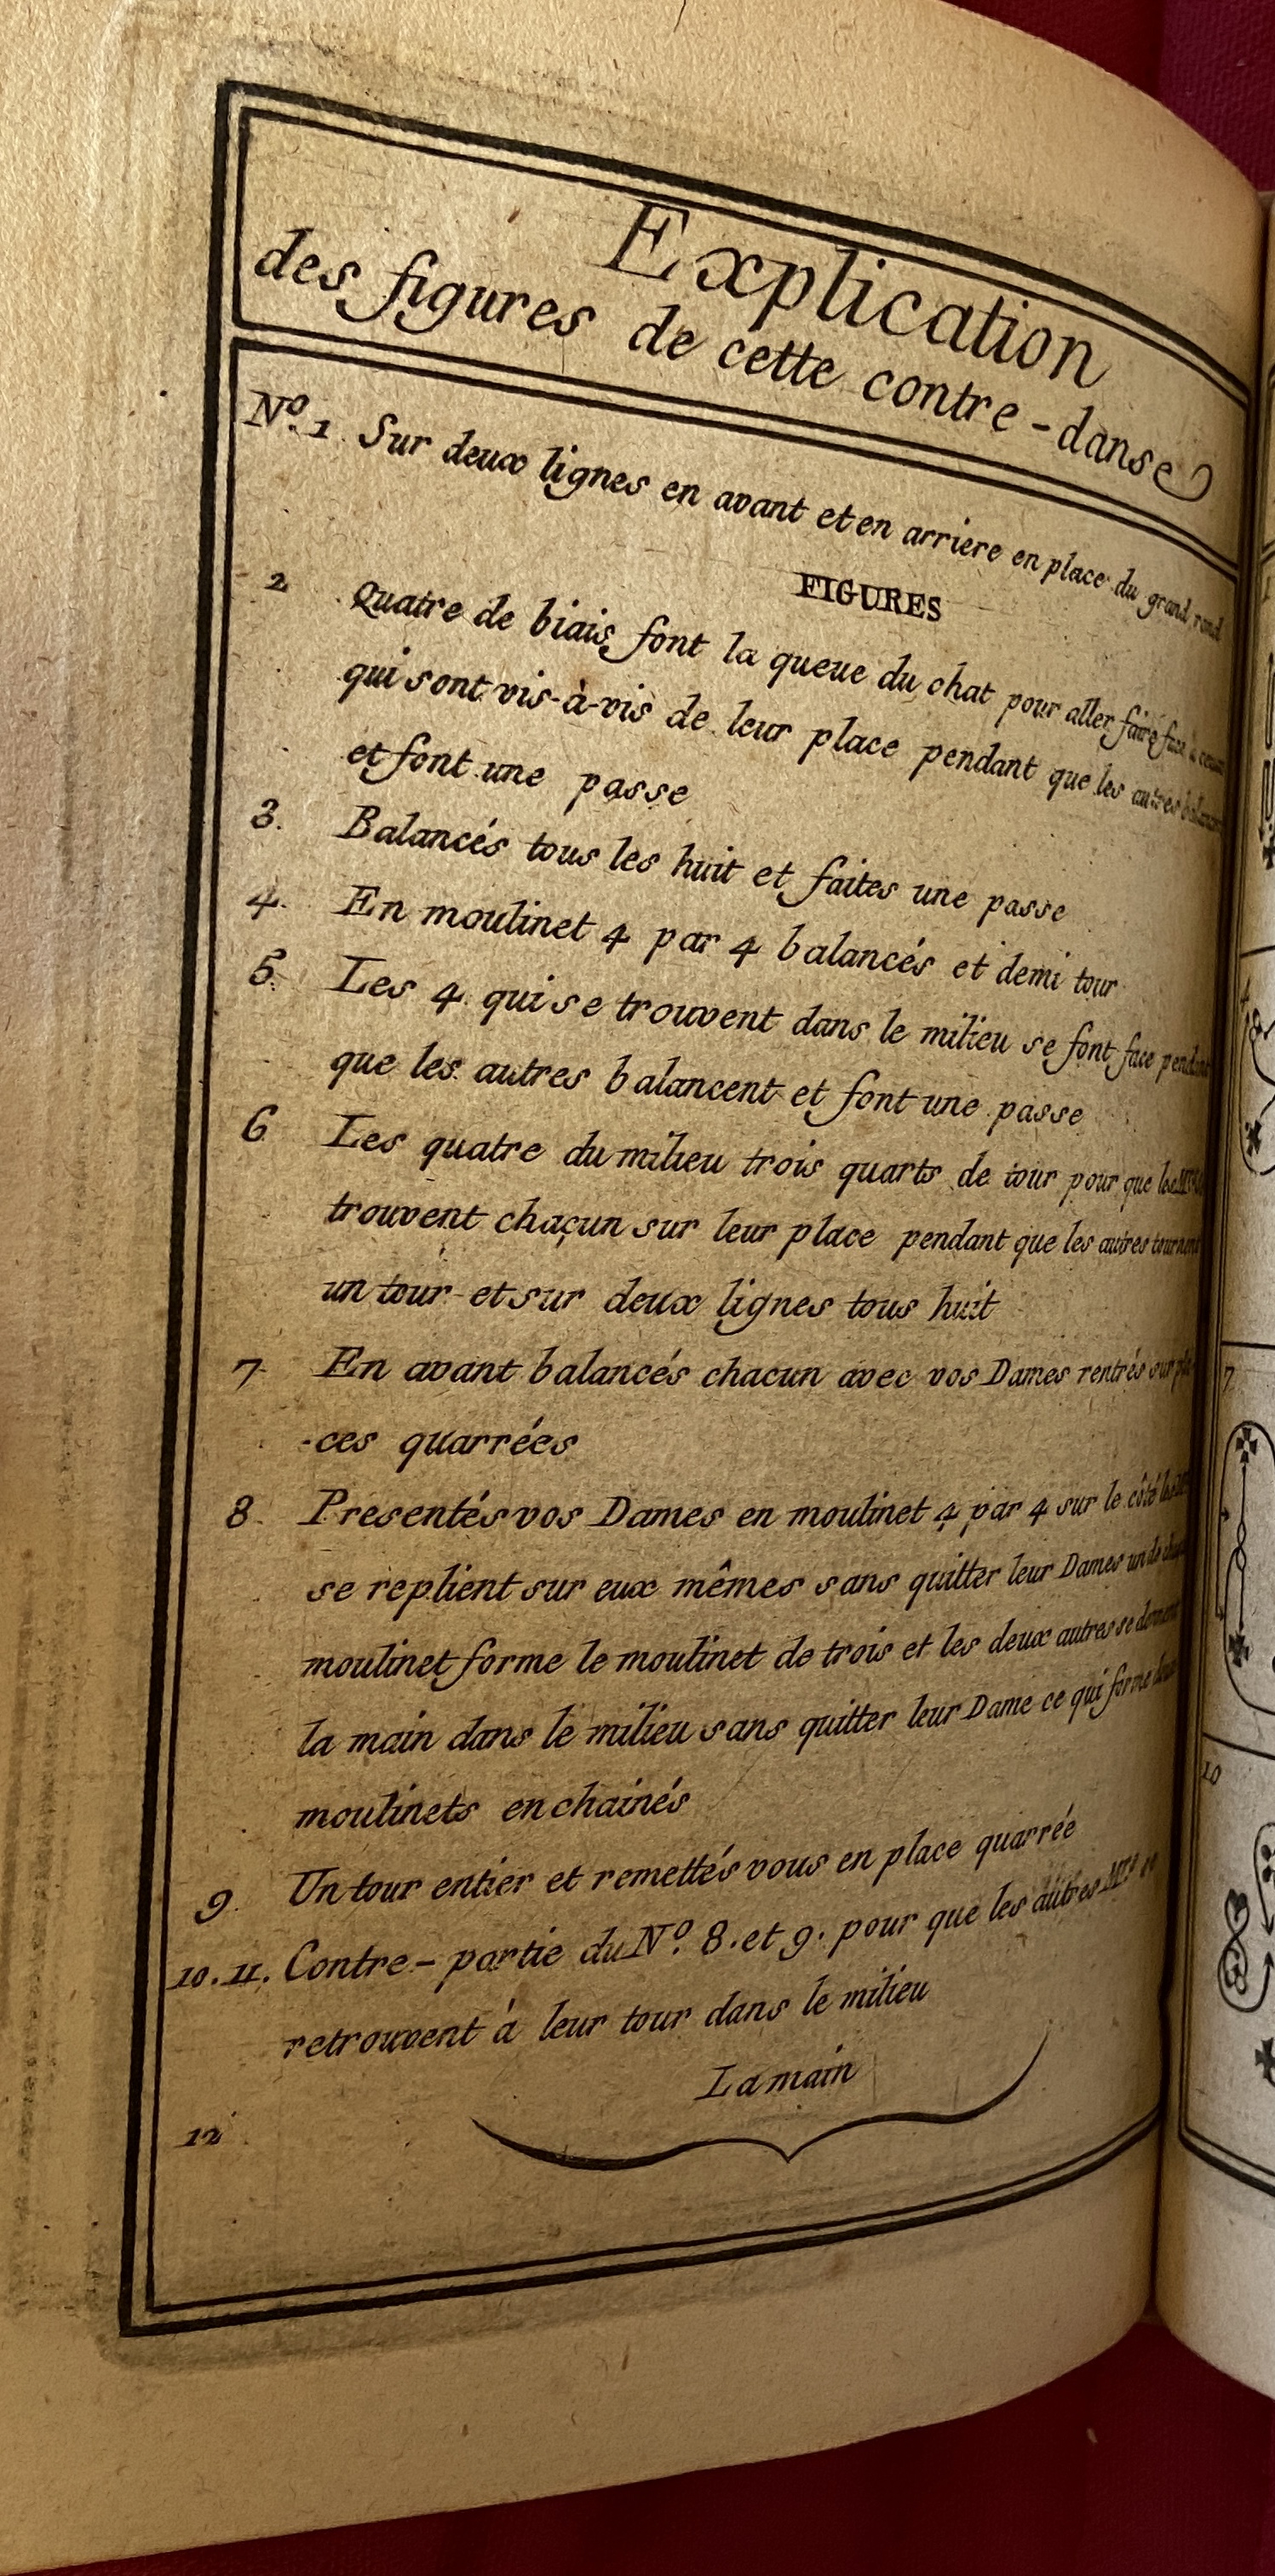 Explication
des figures de cette contre-danse
Nº. 1. Sur deux lignes en avant et en arriere en place du grand rond
FIGURES
2 Quatre de biais font la queue du chat pour aller faire face à ceux
qui sont vis-à-vis de leur place pendant que les autres balancent
et font une passe
3. Balancés tous les huit et faites une passe
4. En moulinet 4 par 4 balancés et demi tour
5. Les 4 qui se trouvent dans le milieu se font face pendant
que les autres balancent et font une passe
6 Les quatre du milieu trois quarts de tour pour que les
trouvent chacun sur leur place pendant que les autres tournent
un tour et sur deux lignes tous huit
7 En avant balancés chacun avec vos Dames rentrés sur pla
-ces quarrées
8. Presentés vos Dames en moulinet 4 par 4 sur le côté les
se replient sur eux mêmes sans quitter leur Dames un de
moulinet forme le moulinet de trois et les deux autres se donnent
la main dans le milieu sans quitter leur Dame ce qui forme deux
moulinets enchainés
9. Un tour entier et remettés vous en place quarrée
10. 11. Contre-partie du Nº. 8. et 9. pour que les autres Mrs
retrouvent à leur tour dans le milieu
12 La main
7
10